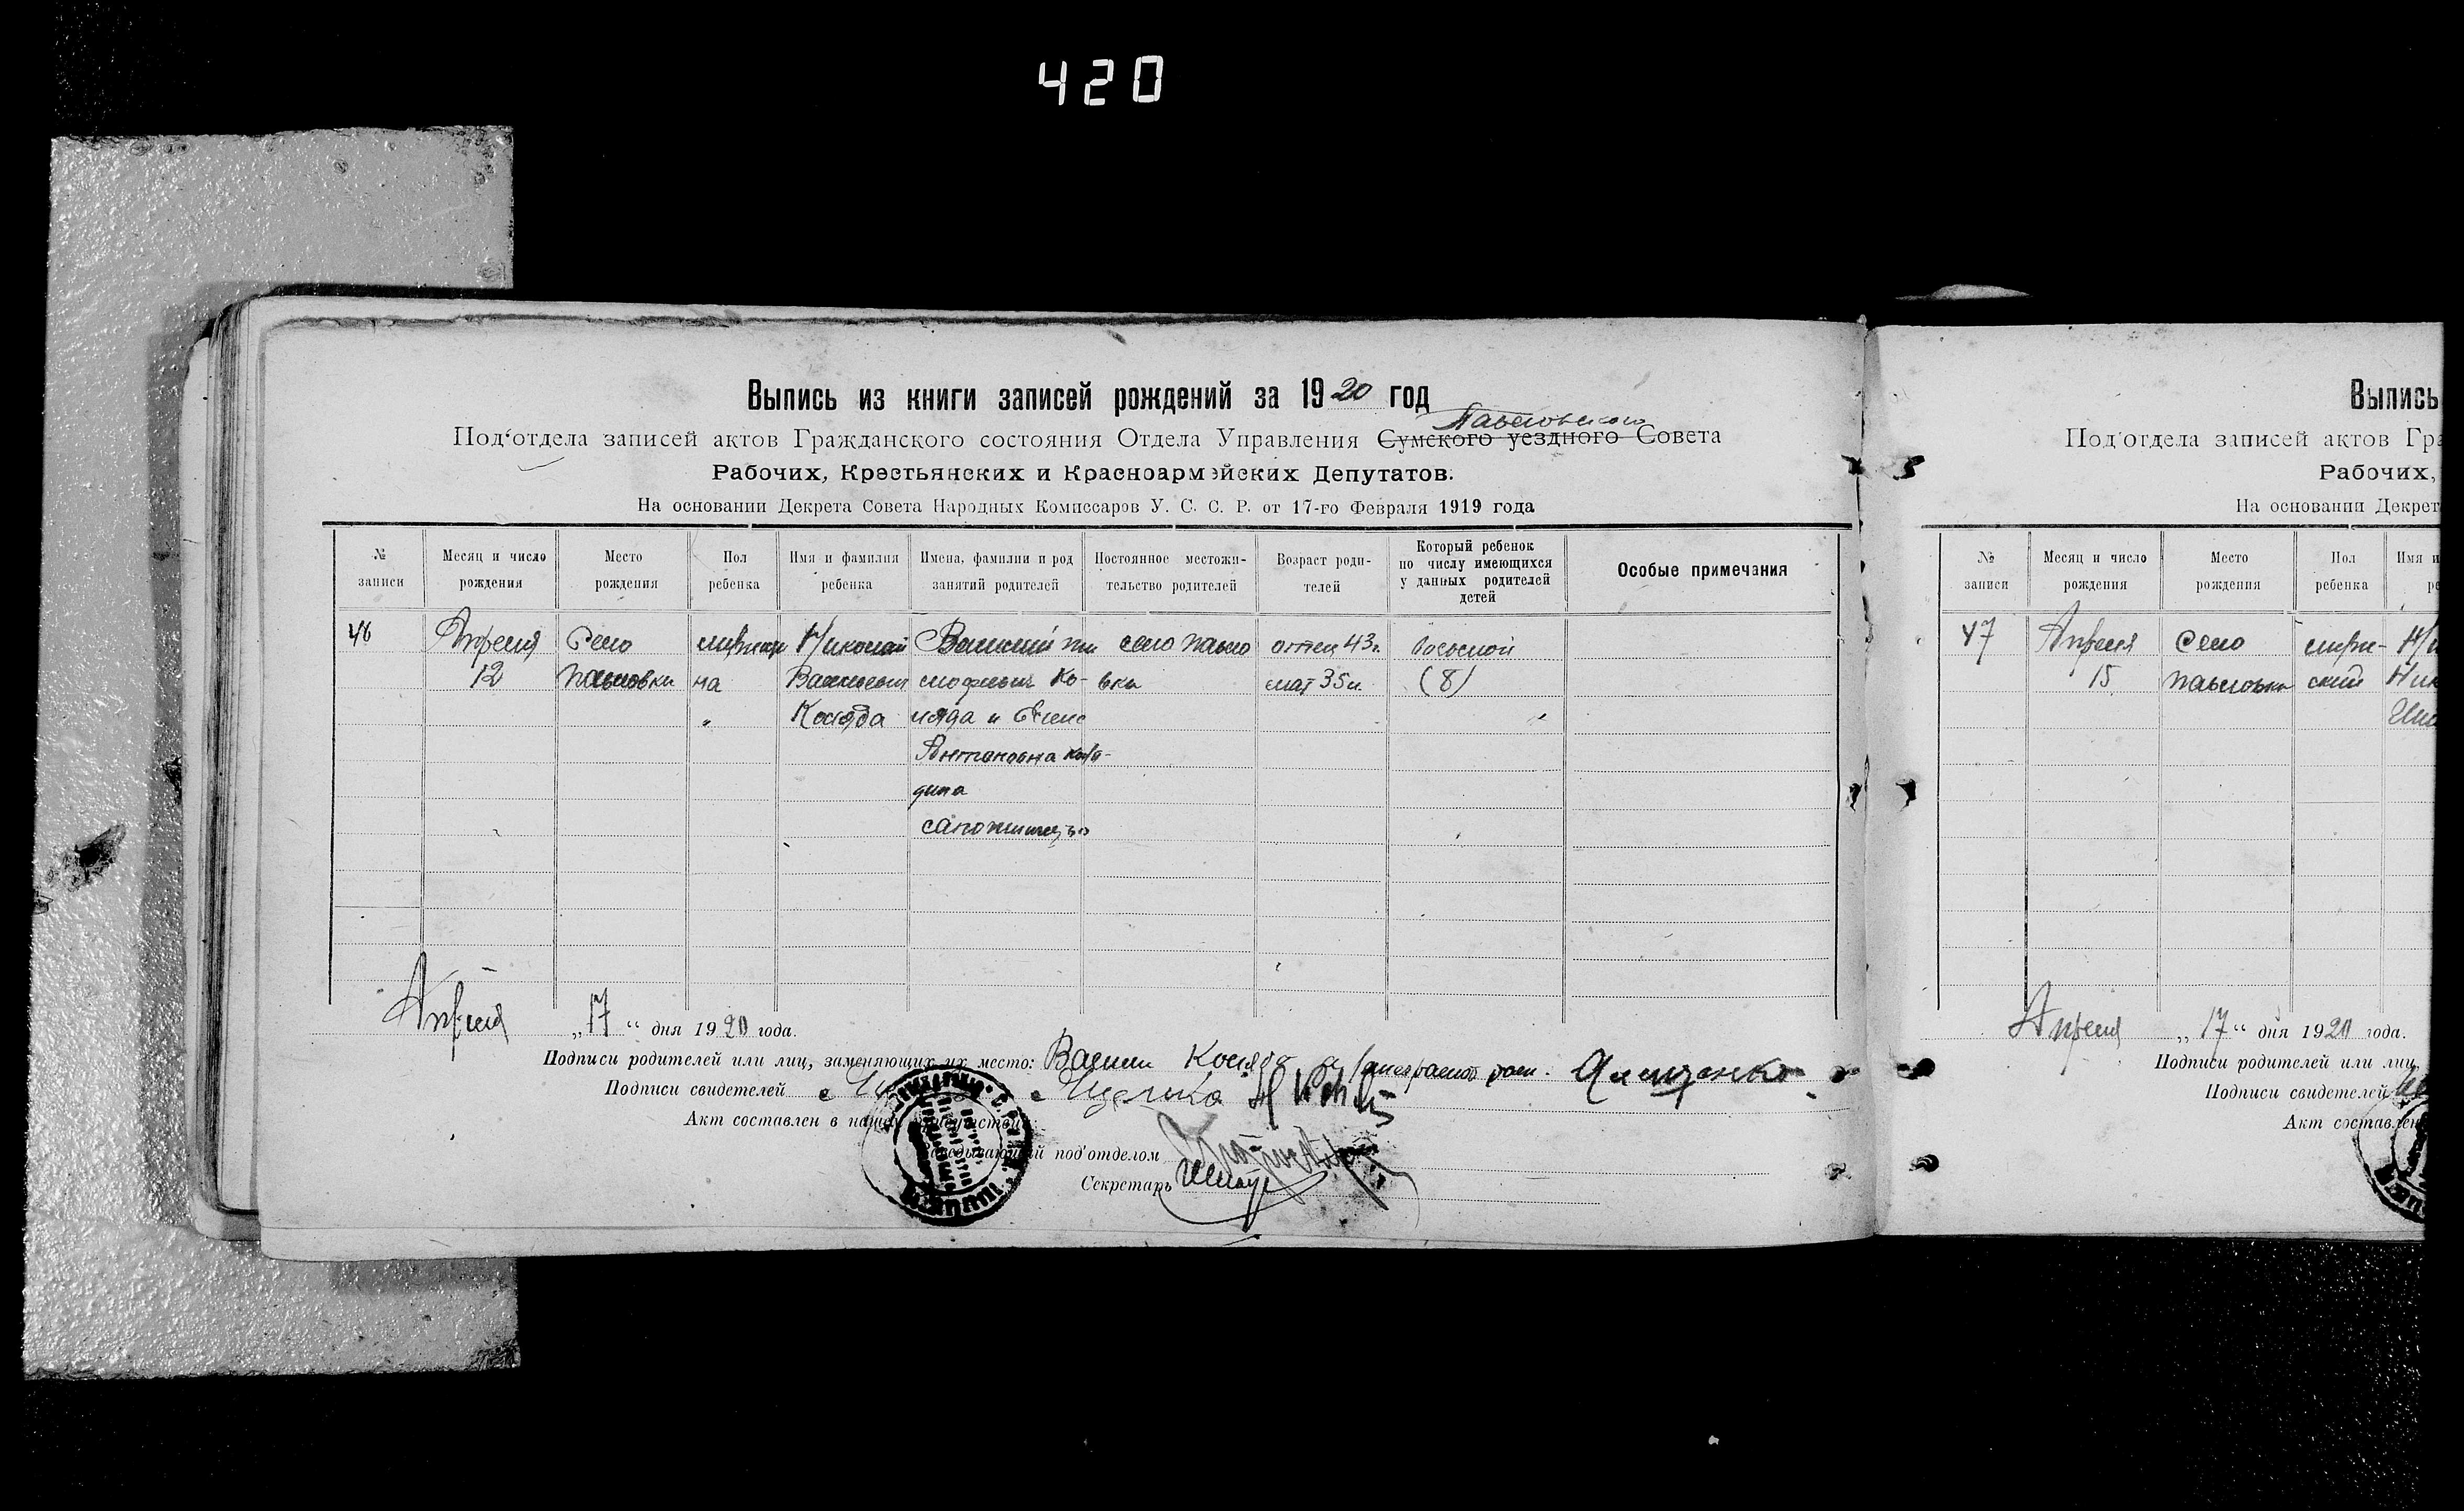 420
Выпись из книги записей рождений за 1920 год
Павловского
Под'отдела записей актов Гражданского состояния Отдела Управления Сумского уездного Совета
Рабочих, Крестьянских и Красноармейских Депутатов.
На основании Декрета Совета Народных Комиссаров У. С. С. Р. от 17-го Февраля 1919 года
№ записи
Месяц и число рождения
Место рождения
Пол ребенка
Имя и фамилия ребенка
Имена, фамилии и род занятий родителей
Постоянное местожительство родителей
Возраст родителей
Который ребенок по числу имеющихся у данных родителей детей
Особые примечания
46 Апреля Село Николай Василий Ти село Павло отец 43 г. восьмой
12 Павловки на Васильевич мофеевич Ко- вка мат 35 л. (8)
" Коляда ляда и
Антоновна
дина
Апреля „17“ дня 1920 года.
Подписи родителей или лиц, заменяющих их место: Коляда
Подписи свидетелей
Акт составлен в нашем присутствии
Заведывающий под'отделом
Секретарь
Выпись
Под'отдела записей актов Гра
Рабочих,
На основании Декрет
№ записи
Месяц и число рождения
Место рождения
Пол ребенка
Имя и
47 Апреля Село
15 Павловка ский Ник
Апреля „17“ дня 1920 года.
Подписи родителей или лиц,
Подписи свидетелей
Акт составлен